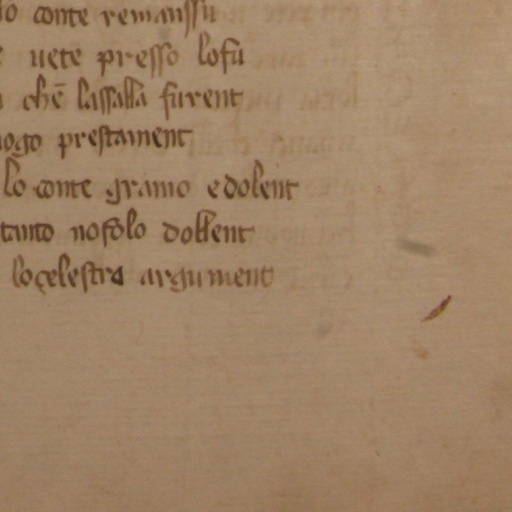 lo conte remanssu
uete presso lofu
chē lassalla furent
ogo prestament
lo conte gramo edolent
tanto nofolo dollent
loçelestra argument